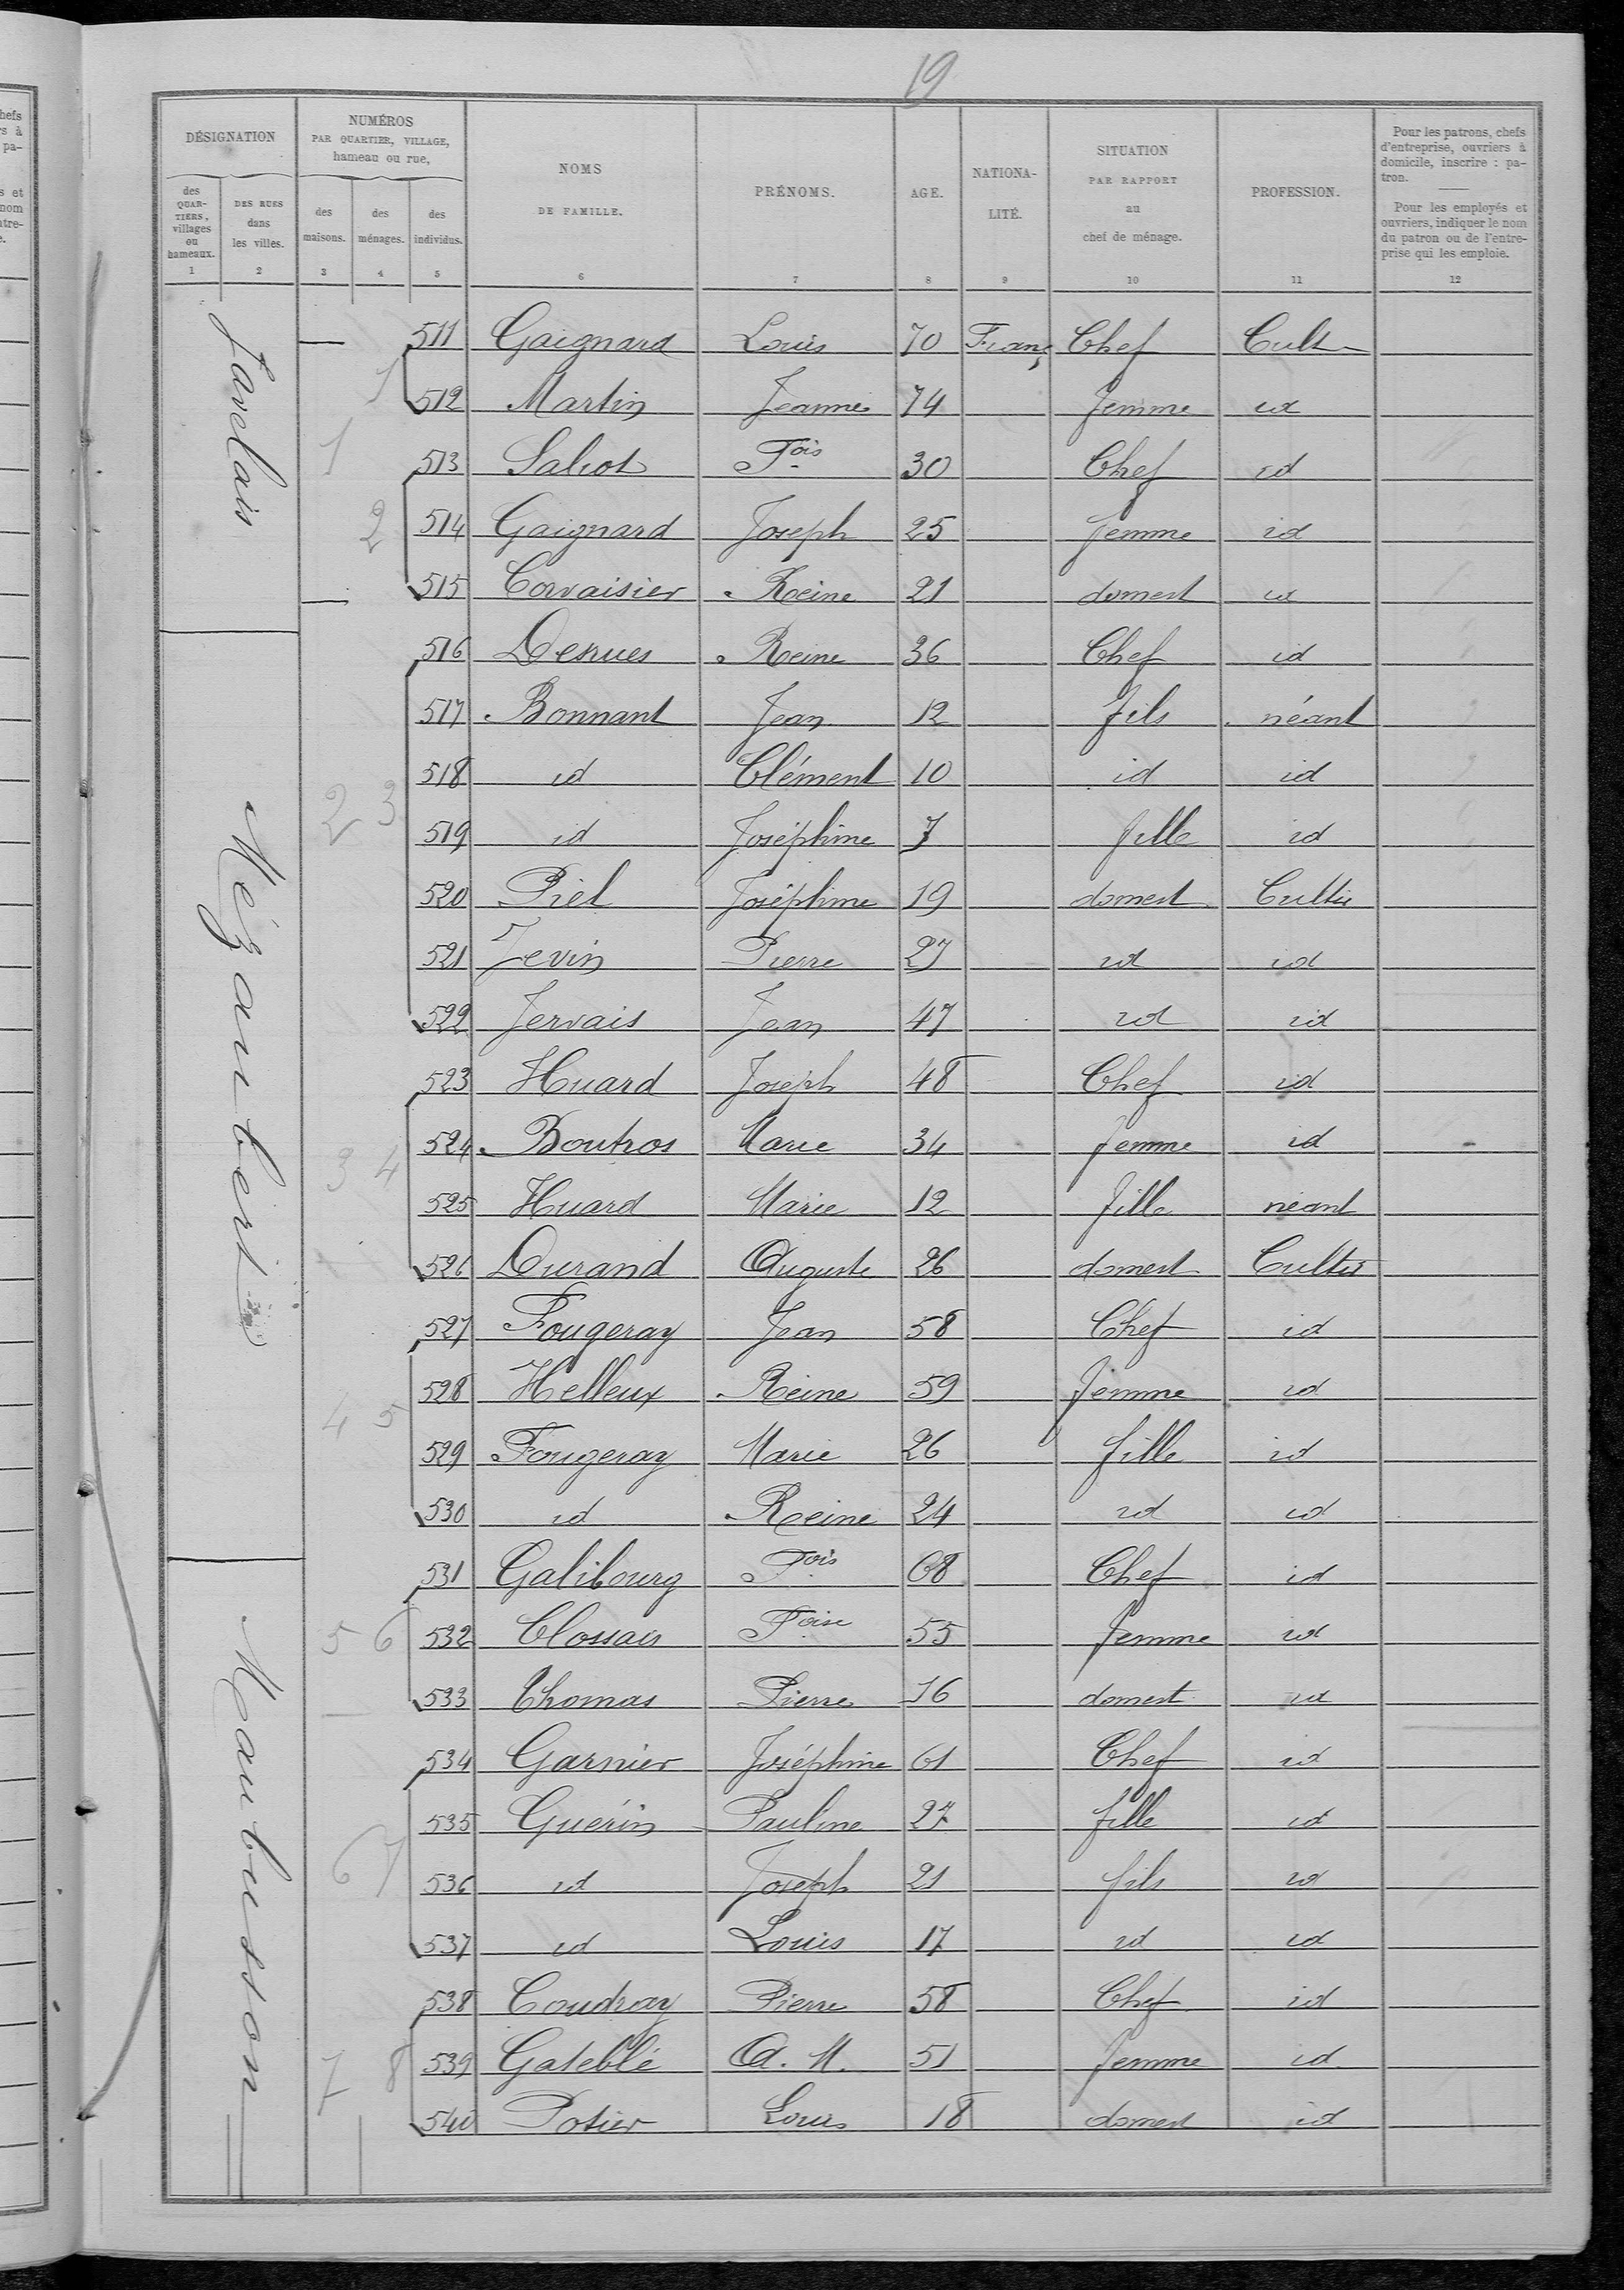 19
DÉSIGNATION
NUMÉROS PAR QUARTIER, VILLAGE, hameau ou rue,
NOMS DE FAMILLE.
PRÉNOMS.
AGE.
NATIONALITÉ.
SITUATION PAR RAPPORT au chef de ménage.
PROFESSION.
Pour les patrons, chefs d'entreprise, ouvriers à domicile, inscrire : patron.
Pour les employés et ouvriers, indiquer le nom du patron ou de l'entreprise qui les emploie.
des QUARTIERS, villages ou hameaux.
DES RUES dans les villes.
des maisons.
des ménages.
des individus.
1 2 3 4 5 6 7 8 9 10 11 12
Javelais
511 Gaignard Louis 70 Franç Chef Cult
1 512 Martin Jeanne 74 femme id
1 513 Saliot Fois 30 Chef id
2 514 Gaignard Joseph 25 femme id
515 Corvaisier Reine 21 domest id
Mézaubert
516 Desrues Reine 36 Chef id
517 Bonnant Jean 12 fils néant
518 id Clément 10 id id
2 3 519 id Joséphine 7 fille id
520 Piel Joséphine 19 domest Cultiv
521 Jevin Pierre 27 id id
522 Jervais Jean 47 id id
523 Huard Joseph 48 Chef id
3 4 524 Boutros Marie 34 femme id
525 Huard Marie 12 fille néant
526 Durand Auguste 26 domest Cultiv
527 Fougeray Jean 58 Chef id
4 5 528 Helleux Reine 59 femme id
529 Fougeray Marie 26 fille id
530 id Reine 24 id id
Maubusson
531 Galibourg Fois 68 Chef id
5 6 532 Clossais Foise 55 femme id
533 Thomas Pierre 16 domest id
534 Garnier Joséphine 61 Chef id
535 Guérin Pauline 27 fille id
6 7 536 id Joseph 21 fils id
537 id Louis 17 id id
538 Coudray Pierre 58 Chef id
7 8 539 Gateblé A. M. 51 femme id
540 Potier Louis 18 domest id